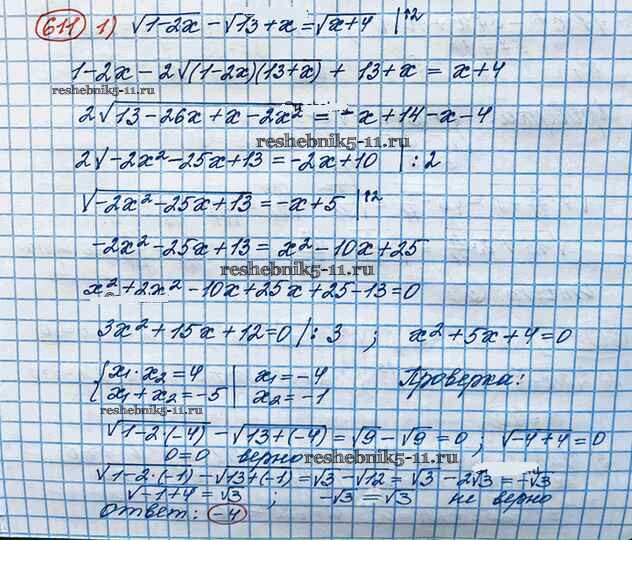 611 1) √1-2x - √13+x = √x+4 |↑2
1-2x-2√(1-2x)(13+x) + 13+x = x+4
reshebnik5-11.ru
2√13-26x+x-2x² = -x+14-x-4
reshebnik5-11.ru
2√-2x²-25x+13 = -2x+10 | : 2
√-2x²-25x+13 = -x+5 |↑2
-2x²-25x+13 = x²-10x+25
reshebnik5-11.ru
x²+2x²-10x+25x+25-13=0
3x²+15x+12=0 |: 3 ; x²+5x+4=0
{x₁·x₂=4 | x₁=-4 Проверка:
x₁+x₂=-5 | x₂=-1
reshebnik5-11.ru
√1-2·(-4) - √13+(-4) = √9 - √9 = 0 ; √-4+4 = 0
0=0 верно
reshebnik5-11.ru
√1-2·(-1) - √13+(-1) = √3 - √12 = √3 - 2√3 = -√3
√-1+4 = √3 ; -√3 = √3 не верно
ответ: -4
reshebnik5-11.ru